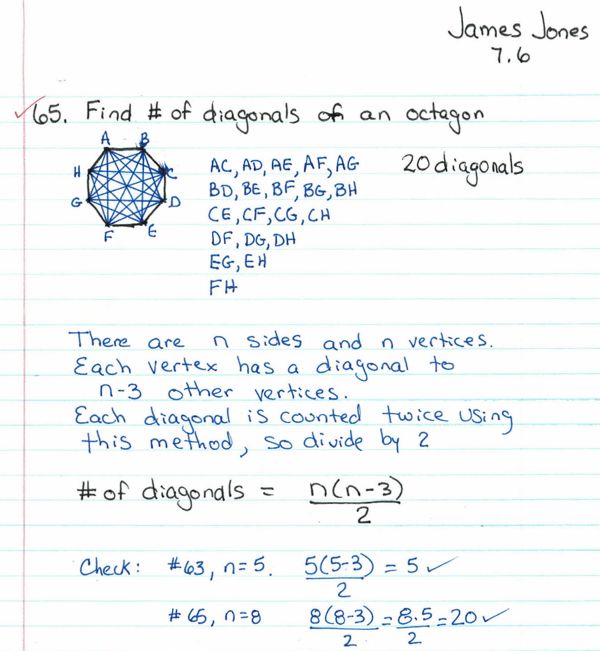 James Jones
7.6
✓65. Find # of diagonals of an octagon
A B
H C
G D
F E
AC, AD, AE, AF, AG 20 diagonals
BD, BE, BF, BG, BH
CE, CF, CG, CH
DF, DG, DH
EG, EH
FH
There are n sides and n vertices.
Each vertex has a diagonal to
n-3 other vertices.
Each diagonal is counted twice using
this method, so divide by 2
# of diagonals = n(n-3)
2
Check: #63, n=5. 5(5-3) = 5 ✓
2
#65, n=8 8(8-3) = 8.5 = 20 ✓
2 2